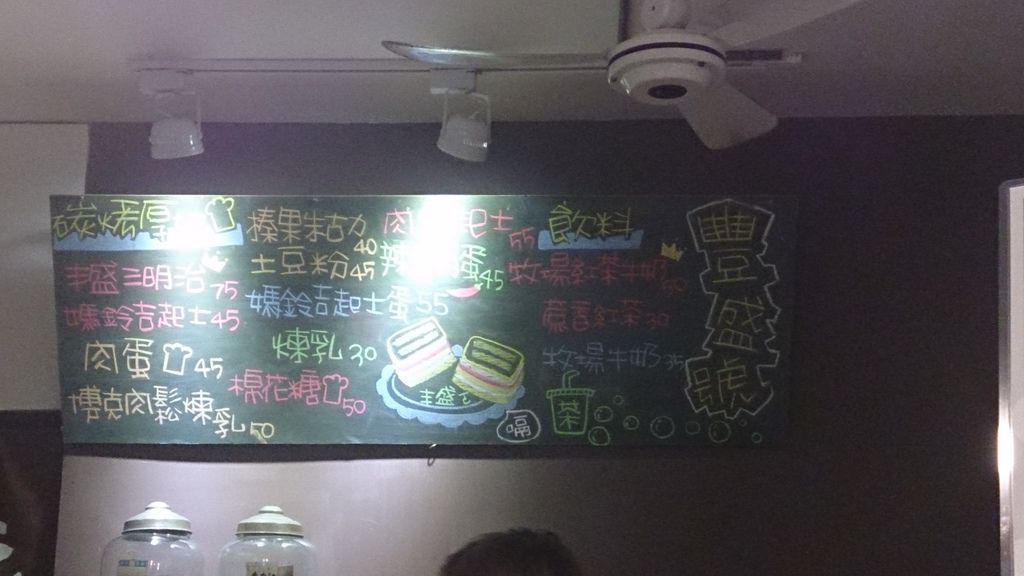 碳烤厚
丰盛三明治75
媽鈴吉起士45
肉蛋45
博克肉鬆煉乳50
榛果朱古力40
土豆粉45
媽鈴吉起士蛋55
煉乳30
棉花糖50
肉 起士55
辣 蛋45
丰盛
嗝
飲料
牧場紅茶牛奶50
蔗香紅茶30
牧場牛奶35
茶
豐盛號